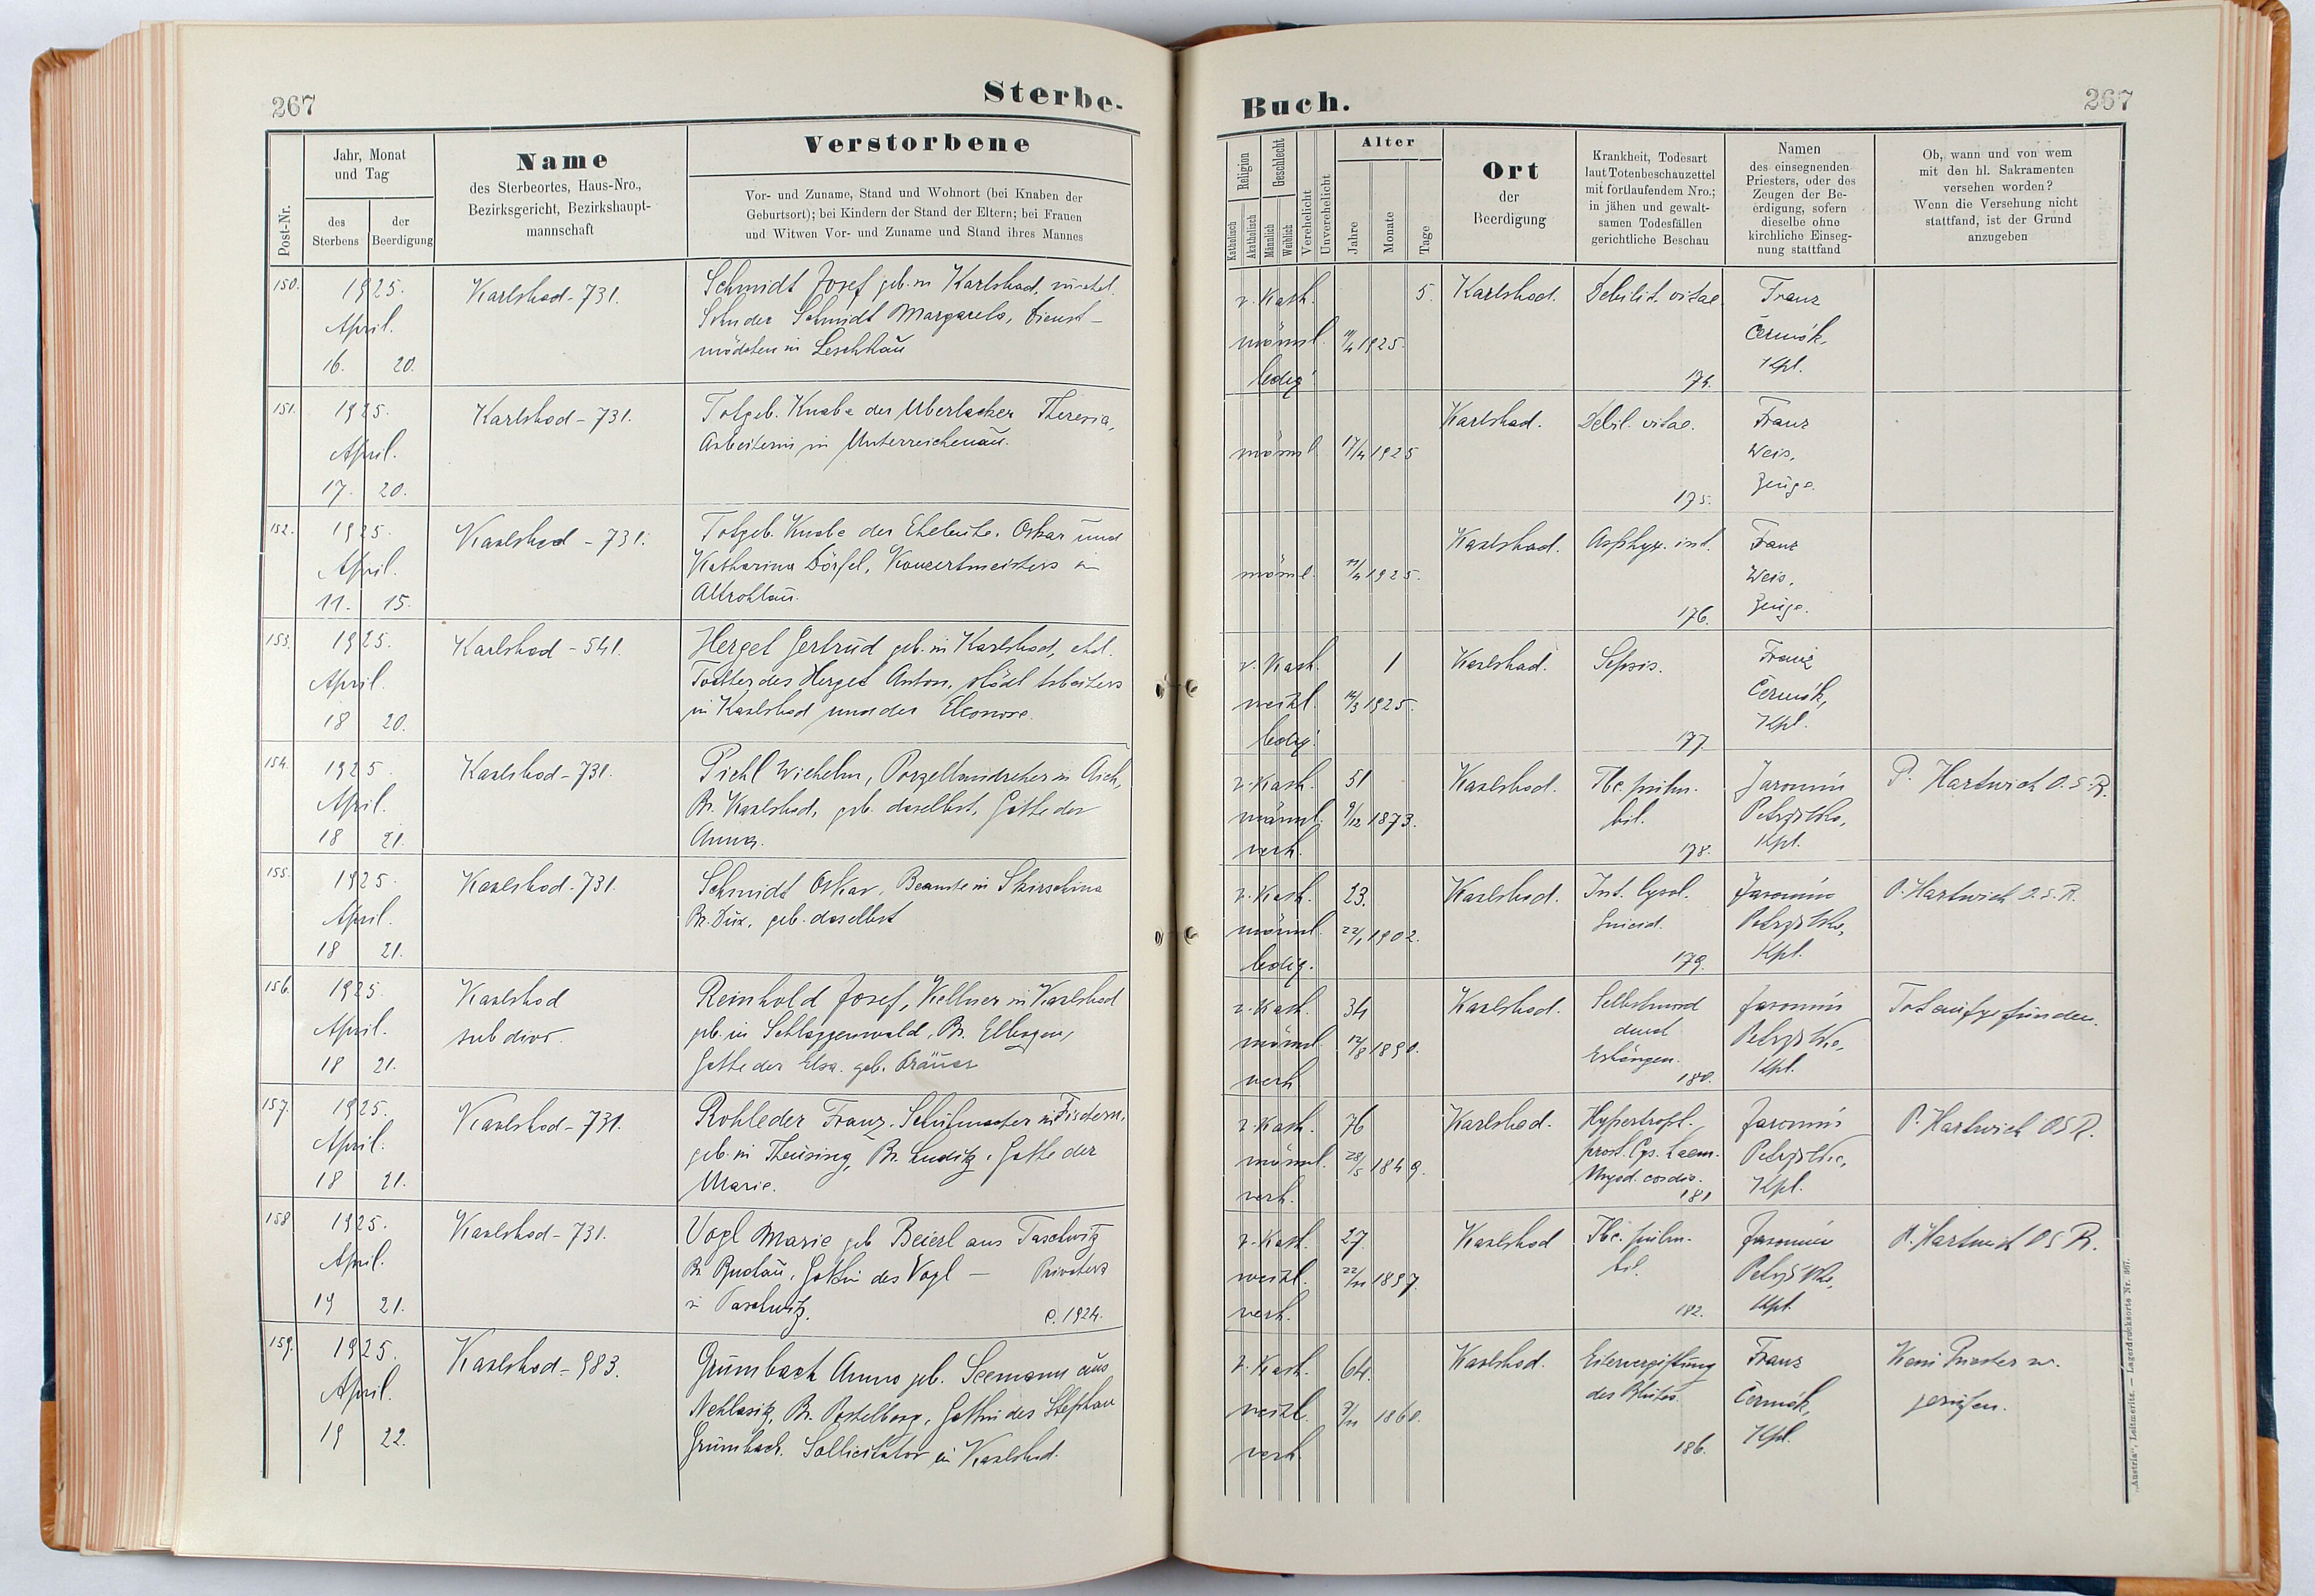 267
Sterbe-
Post-Nr.
Jahr, Monat
und Tag
des
Sterbens
der
Beerdigung
Name
des Sterbeortes, Haus-Nro.,
Bezirksgericht, Bezirkshaupt-
mannschaft
Verstorbene
Vor- und Zuname, Stand und Wohnort (bei Knaben der
Geburtsort); bei Kindern der Stand der Eltern; bei Frauen
und Witwen Vor- und Zuname und Stand ihres Mannes
150.
1925.
April.
16. 20.
Karlsbad - 731.
Schmidt Josef geb. in Karlsbad, unehel.
Sohn der Schmidt Margareta, Dienst-
mädchen in Leschkau
151.
1925.
April.
17. 20.
Karlsbad - 731.
Totgeb. Knabe der Uberlacker Theresia,
Arbeiterin in Unterreichenau.
152.
1925.
April.
11. 15.
Karlsbad - 731.
Totgeb. Knabe der Eheleute Oskar und
Katharina Dörfel, Konzertmeisters in
Altrohlau.
153.
1925.
April.
18 20.
Karlsbad - 541.
Herget Gertrud geb. in Karlsbad, ehel.
Tochter des Herget Anton, städt Arbeiters
in Karlsbad und der Eleonore.
154.
1925
April.
18 21.
Karlsbad - 731.
Pichl Wilhelm, Porzellandreher in Aich,
Br. Karlsbad, geb. daselbst, Gatte der
Anna.
155.
1925.
April.
18 21.
Karlsbad - 731.
Schmidt Oskar, Beamte in Skirschina
Br. Dux, geb. daselbst
156.
1925.
April.
18 21.
Karlsbad
sub divo.
Reinhold Josef, Kellner in Karlsbad
geb. in Schlaggenwald, Br. Elbogen,
Gatte der Elsa geb. Bräuer
157.
1925.
April.
18 21.
Karlsbad - 731.
Rohleder Franz, Schuhmacher in Fischern,
geb. in Theusing, Br. Luditz, Gatte der
Marie.
158
1925.
April.
19 21.
Karlsbad - 731.
Vogl Marie geb Beierl aus Taschwitz
Br Buchau, Gattin des Vogl — Privaters
in Taschwitz.
C. 1924.
159.
1925.
April.
19 22.
Karlsbad - 983.
Grumbach Anna geb. Seemann aus
Nehlasitz, Br. Postelberg, Gattin des Stephan
Grumbach. Sollicitator in Karlsbad.
Buch.
267
Religion
Katholisch
Akatholisch
Geschlecht
Männlich
Weiblich
Verehelicht
Unverehelicht
Alter
Jahre
Monate
Tage
Ort
der
Beerdigung
Krankheit, Todesart
laut Totenbeschauzettel
mit fortlaufendem Nro.;
in jähen und gewalt-
samen Todesfällen
gerichtliche Beschau
Namen
des einsegnenden
Priesters, oder des
Zeugen der Be-
erdigung, sofern
dieselbe ohne
kirchliche Einseg-
nung stattfand
Ob, wann und von wem
mit den hl. Sakramenten
versehen worden?
Wenn die Versehung nicht
stattfand, ist der Grund
anzugeben
r. Kath.
männl.
ledig
5.
11/4 1925.
Karlsbad.
Debilit. vitae
174.
Franz
Čermák,
Kpl.
männl
17/4 1925
Karlsbad.
Debil. vitae.
175.
Franz
Weis,
Zeuge.
männl.
11/4 1925.
Karlsbad.
Asphyx. int.
176.
Franz
Weis,
Zeuge.
r. Kath.
weibl.
ledig.
1
14/3 1925.
Karlsbad.
Sepsis.
177
Franz
Čermák,
Kpl.
r. Kath.
männl.
verh.
51
9/12 1873.
Karlsbad.
Tbc. pulm.
bil.
178.
Jaromir
Kpl.
P. Hartwich O.S.R.
r. Kath.
männl.
ledig.
23.
22/1 1902.
Karlsbad.
Int. Lysol.
Suicid.
179.
Jaromir
Kpl.
P. Hartwich O.S.R.
r. Kath.
männl.
verh
34
12/8 1890.
Karlsbad.
Selbstmord
durch
Erhängen.
180.
Jaromir
Kpl.
Tot aufgefunden.
r. Kath.
männl.
verh.
76
28/5 1849.
Karlsbad.
Hypertroph.
prost. Cys. haem.
Myod. cordis.
181
Jaromir
Kpl.
P. Hartwich O.S.R.
r. Kath.
weibl.
verh.
27
22/11 1897.
Karlsbad
Tbc. pulm.
bil.
182.
Jaromir
Kpl.
P. Hartwich O.S.R.
r. Kath.
weibl.
verh.
64.
1860.
Karlsbad.
Eitervergiftung
des Blutes.
186.
Franz
Čermák,
Kpl.
Kein Priester w.
gerufen.
„Austria", Leitmeritz. — Lagerdrucksorte Nr. 667.